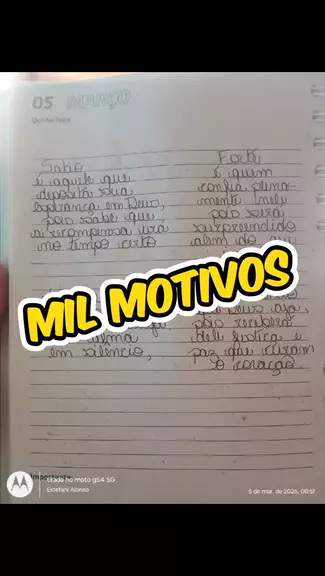 05 MARÇO
Quinta-feira
Sábio
é aquele que
deposita sua
esperança em Deus,
pois sabe que
a recompensa virá
no tempo certo
Forte
é quem
confia plena-
mente nele
pois será
surpreendido
além do que
MIL MOTIVOS
alma
em silêncio,
que Deus aja,
pois receberá
dele justiça e
paz que curam
o coração.
Importante
tirada no moto g54 5G
Estefani Alonso
5 de mar. de 2026, 08:51